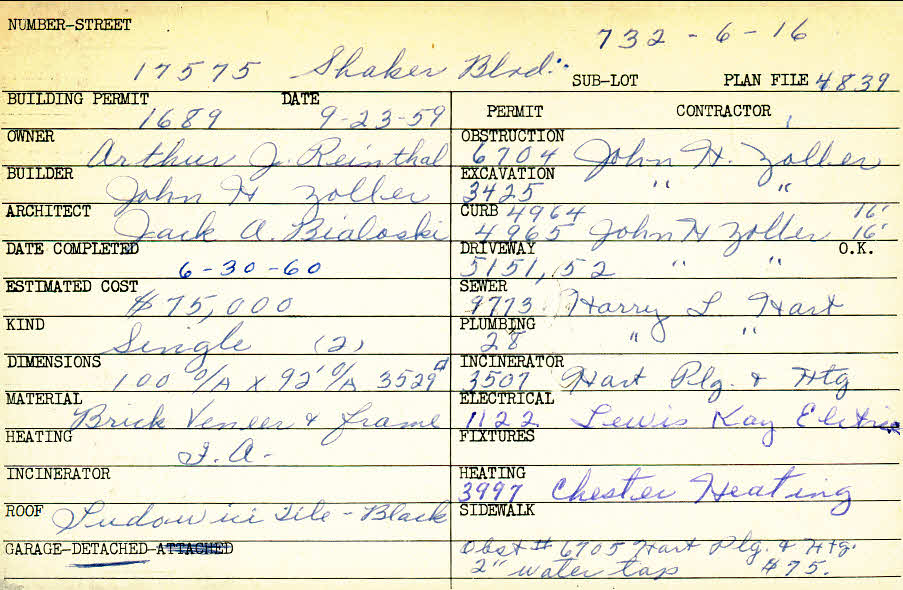 NUMBER-STREET
732-6-16
17575 Shaker Blvd.
SUB-LOT PLAN FILE 4839
BUILDING PERMIT DATE
1689 9-23-59
OWNER
Arthur J. Reinthal
BUILDER
John H Zoller
ARCHITECT
Jack A. Bialoski
DATE COMPLETED
6-30-60
ESTIMATED COST
$75,000
KIND
Single (2)
DIMENSIONS
100 O/A X 92' O/A 3529
MATERIAL
Brick Veneer & frame
HEATING
F.A.
INCINERATOR
ROOF Ludowici Tile - Black
GARAGE-DETACHED-ATTACHED
PERMIT CONTRACTOR
OBSTRUCTION
6704 John H. Zoller
EXCAVATION
3425 " "
CURB 4964 16'
4965 John H Zoller 16'
DRIVEWAY O.K.
5151,52 " "
SEWER
9773 Harry L Hart
PLUMBING
28 " "
INCINERATOR
3507 Hart Plg. & Htg
ELECTRICAL
1122 Lewis Kay Elctric
FIXTURES
HEATING
3997 Chester Heating
SIDEWALK
Obst # 6705 Hart Plg. & Htg.
2" water tap $75.